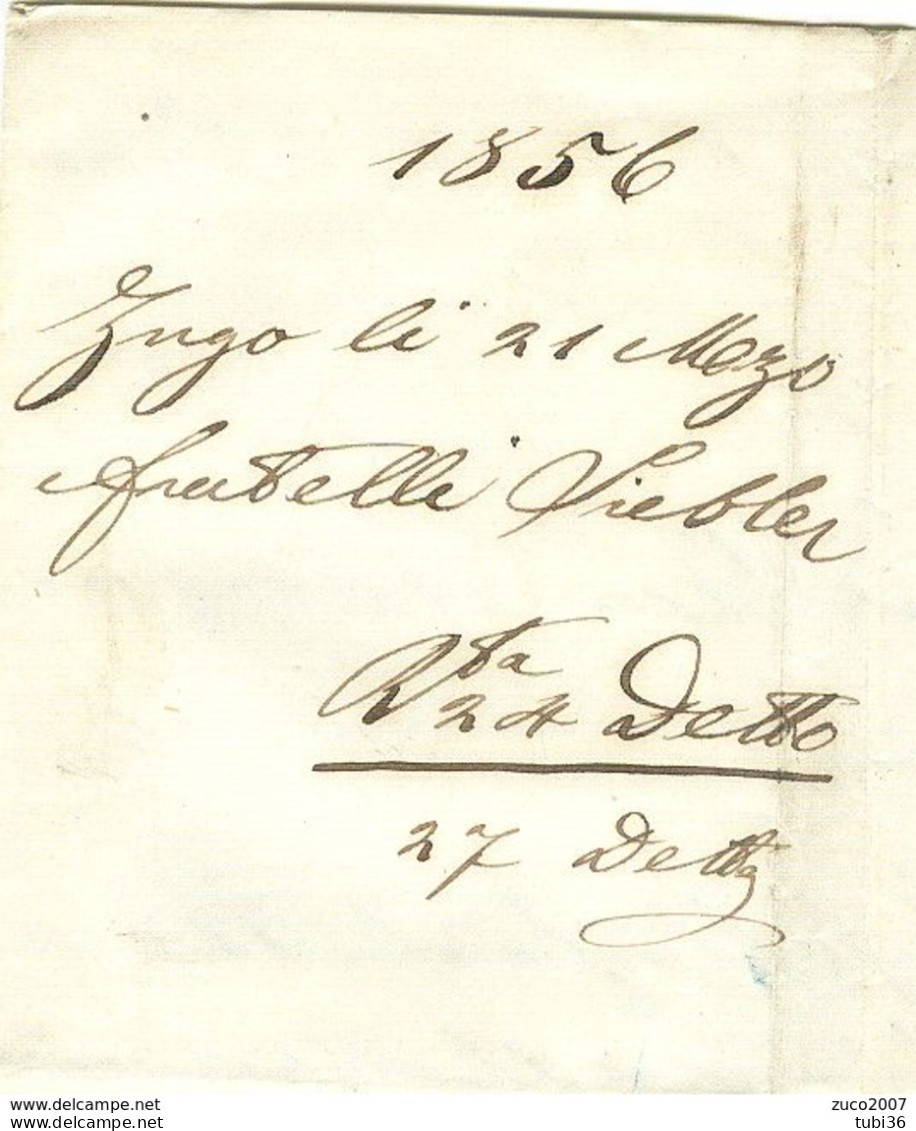 1856
Zugo li 21 Mezo
fratelli Siebler
Rta
24 Detto
27 Detto
www.delcampe.net
www.delcampe.net
zuco2007
tubi36